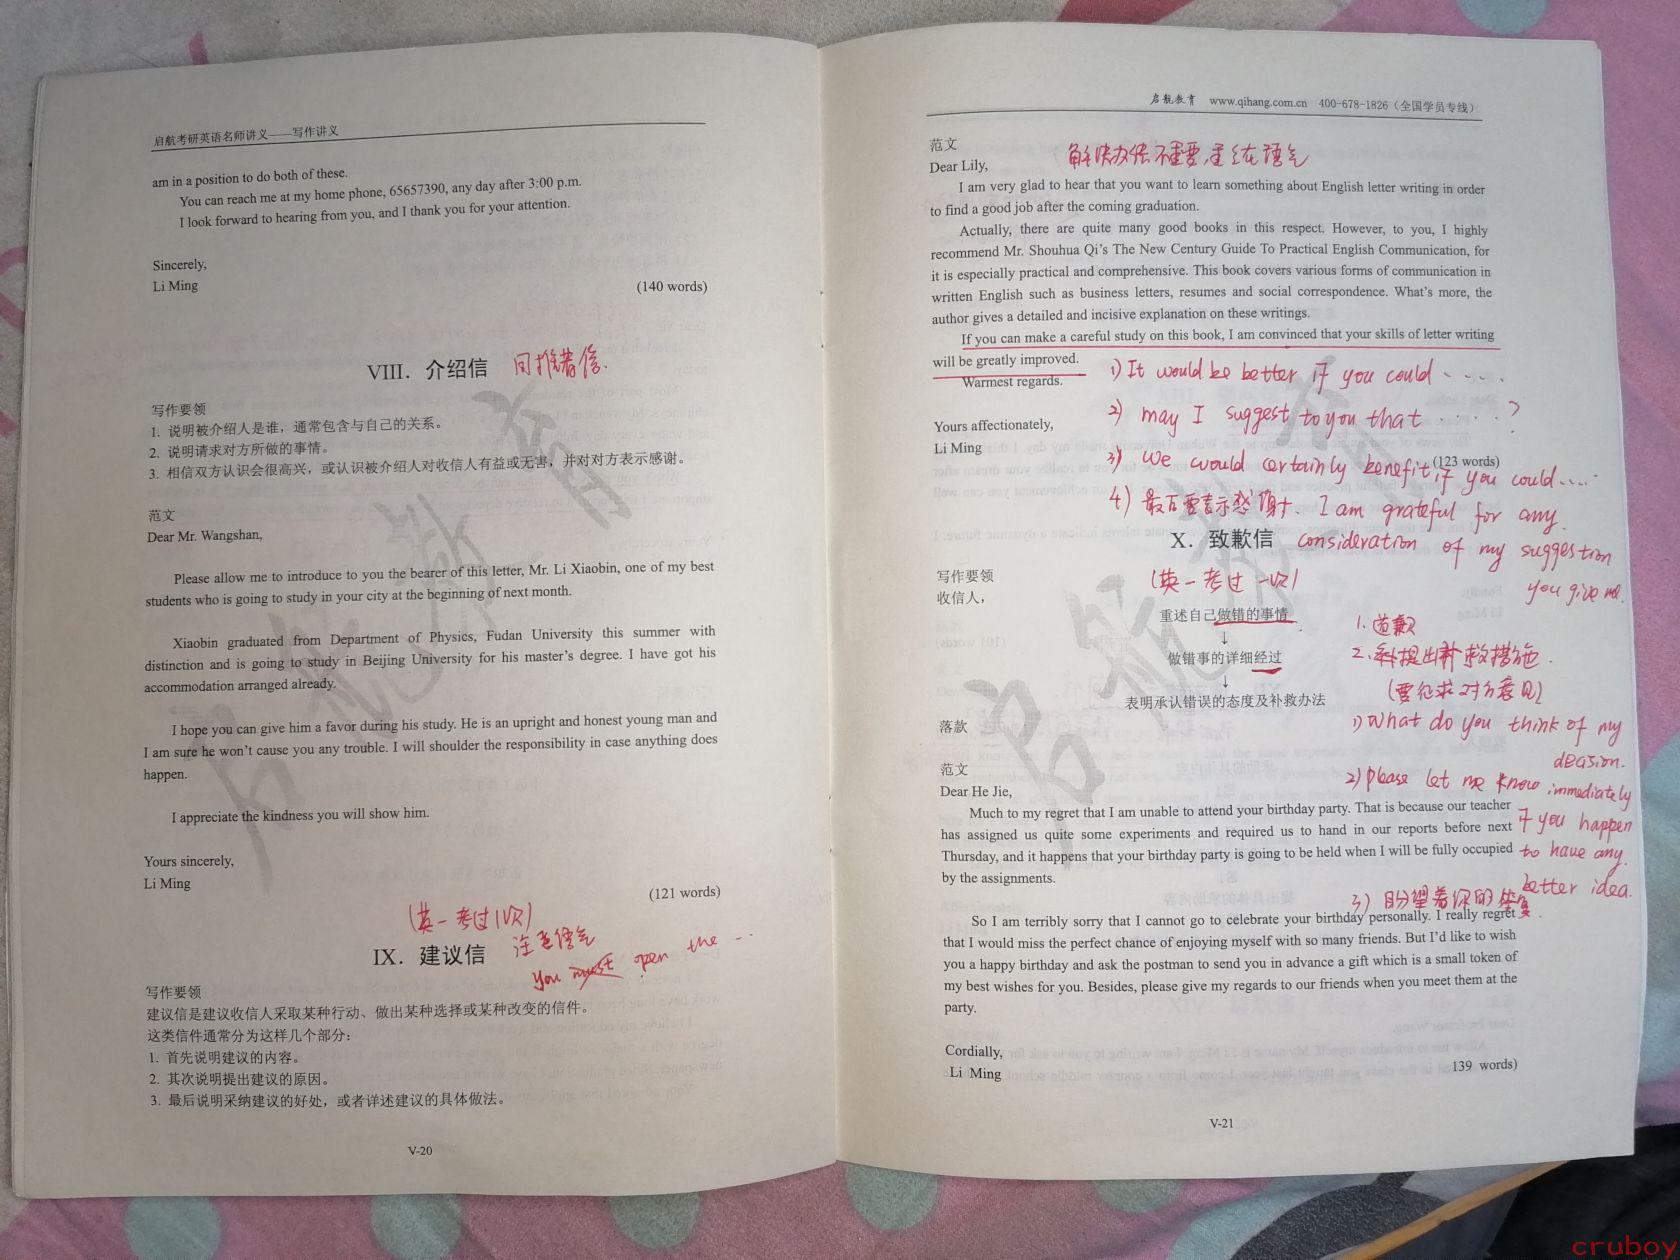 启航考研英语名师讲义——写作讲义
am in a position to do both of these.
You can reach me at my home phone, 65657390, any day after 3:00 p.m.
I look forward to hearing from you, and I thank you for your attention.
Sincerely,
Li Ming
(140 words)
VIII. 介绍信 同推荐信.
写作要领
1. 说明被介绍人是谁，通常包含与自己的关系。
2. 说明请求对方所做的事情。
3. 相信双方认识会很高兴，或认识被介绍人对收信人有益或无害，并对对方表示感谢。
范文
Dear Mr. Wangshan,
Please allow me to introduce to you the bearer of this letter, Mr. Li Xiaobin, one of my best
students who is going to study in your city at the beginning of next month.
Xiaobin graduated from Department of Physics, Fudan University this summer with
distinction and is going to study in Beijing University for his master's degree. I have got his
accommodation arranged already.
I hope you can give him a favor during his study. He is an upright and honest young man and
I am sure he won't cause you any trouble. I will shoulder the responsibility in case anything does
happen.
I appreciate the kindness you will show him.
Yours sincerely,
Li Ming
(121 words)
(英一考过1次)
IX. 建议信 注意语气
you must open the ...
写作要领
建议信是建议收信人采取某种行动、做出某种选择或某种改变的信件。
这类信件通常分为这样几个部分：
1. 首先说明建议的内容。
2. 其次说明提出建议的原因。
3. 最后说明采纳建议的好处，或者详述建议的具体做法。
V-20
启航教育 www.qihang.com.cn 400-678-1826（全国学员专线）
范文
解决办法不重要,重在语气
Dear Lily,
I am very glad to hear that you want to learn something about English letter writing in order
to find a good job after the coming graduation.
Actually, there are quite many good books in this respect. However, to you, I highly
recommend Mr. Shouhua Qi's The New Century Guide To Practical English Communication, for
it is especially practical and comprehensive. This book covers various forms of communication in
written English such as business letters, resumes and social correspondence. What's more, the
author gives a detailed and incisive explanation on these writings.
If you can make a careful study on this book, I am convinced that your skills of letter writing
will be greatly improved.
Warmest regards.
1) It would be better if you could ....
2) may I suggest to you that ......?
Yours affectionately,
Li Ming
(123 words)
3) We would certainly benefit if you could....
4) 最后要表示感谢. I am grateful for any
consideration of my suggestion
you give me.
X. 致歉信
(英一考过一次)
写作要领
收信人，
重述自己做错的事情
↓
做错事的详细经过
↓
表明承认错误的态度及补救办法
落款
1. 道歉
2. 提出补救措施.
(要征求对方意见)
1) What do you think of my
decision.
2) please let me know immediately
if you happen
to have any
better idea.
3) 盼望着你的答复.
范文
Dear He Jie,
Much to my regret that I am unable to attend your birthday party. That is because our teacher
has assigned us quite some experiments and required us to hand in our reports before next
Thursday, and it happens that your birthday party is going to be held when I will be fully occupied
by the assignments.
So I am terribly sorry that I cannot go to celebrate your birthday personally. I really regret
that I would miss the perfect chance of enjoying myself with so many friends. But I'd like to wish
you a happy birthday and ask the postman to send you in advance a gift which is a small token of
my best wishes for you. Besides, please give my regards to our friends when you meet them at the
party.
Cordially,
Li Ming
139 words)
V-21
启航教育
启航教育
cruboy